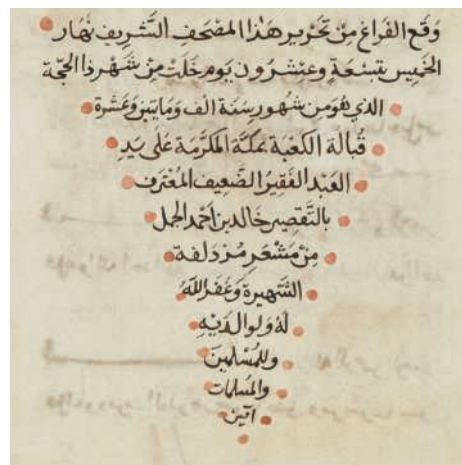 وَقَع الفَراغ مِنْ تَحْرِير هَذا المصْحَفِ الشَّرِيف نَهَار
الخميس تِسْعَةٍ وعِشْرُون يَوم خَلَتْ مِنْ شَهْر ذا الحجّة
الذي هُوَ من شُهُور سَنَة الف وَمايتين وَعَشْرة
قُبالة الكَعْبَة بمكَّة المكَرَّمَة عَلى يَدِ
العَبْد الفَقِير الضَّعِيف المُعْتَرف
بالتَّقصِير خَالد بن احْمد الجمل
مِنْ مَشْعَرِ مُزدَلفَة
الشَّهِيرة وَغَفَر اللّهُ
لَهُ وَلوالدَيْهِ
وللمُسْلمينَ
والمُسْلمات
امين